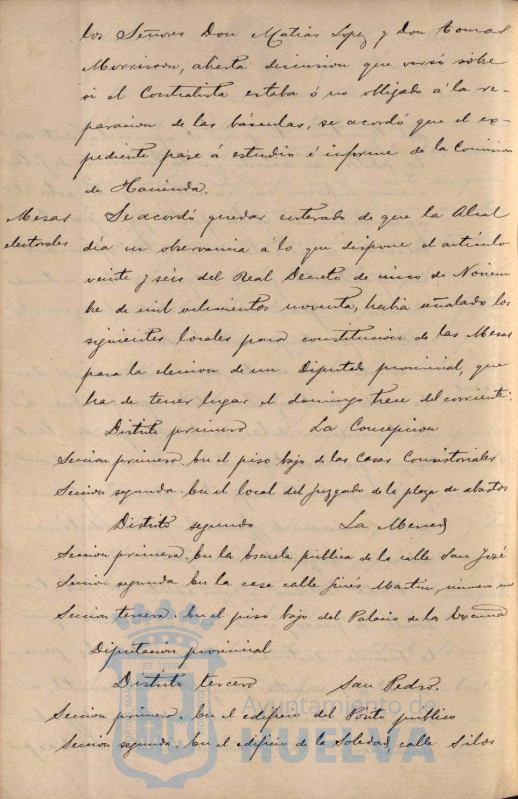 los Señores Don Matias Lopez y Don Tomas
Morrisson, abierta discusion que versó sobre
si el Contratista estaba ó no obligado á la re-
paracion de las básculas, se acordó que el ex-
pediente pase á estudio é informe de la Comision
de Hacienda.
Mesas
electorales
Se acordó quedar enterado de que la Alcal
dia en observancia á lo que dispone el artículo
veinte y seis del Real Decreto de cinco de Noviem
bre de mil ochocientos noventa, habia señalado los
siguientes locales para constitucion de las Mesas
para la eleccion de un Diputado provincial, que
ha de tener lugar el domingo trece del corriente:
Distrito primero La Concepcion
Seccion primera. En el piso bajo de las Casas Consistoriales
Seccion segunda. En el local del Juzgado de la plaza de abastos
Distrito segundo La Merced
Seccion primera. En la Escuela publica de la calle San José
Seccion segunda En la casa calle Ginés Martin, número uno
Seccion tercera. En el piso bajo del Palacio de la Excma
Diputacion provincial
Distrito tercero San Pedro.
Seccion primera. En el edificio del Pósito publico
Seccion segunda. En el edificio de la Soledad, calle Silos
Ayuntamiento de
HUELVA